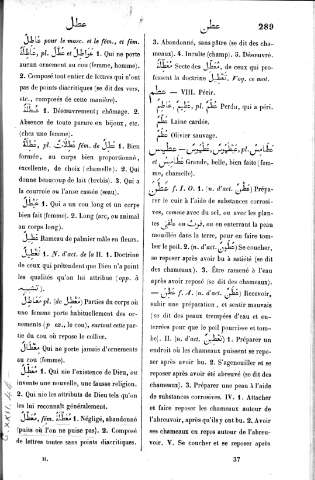 عطل
عطن
289
عَاطِلٌ pour le masc. et le fém., et fém.
عَاطِلَةٌ, pl. عَوَاطِلُ et عُطَّلٌ 1. Qui ne porte
aucun ornement au cou (femme, homme).
2. Composé tout entier de lettres qui n'ont
pas de points diacritiques (se dit des vers,
etc., composés de cette manière).
عُطْلَةٌ 1. Désœuvrement; chômage. 2.
Absence de toute parure en bijoux, etc.
(chez une femme).
عَطِلَةٌ, pl. عَطِلَاتٌ fém. de عَطِلٌ 1. Bien
formée, au corps bien proportionné,
excellente, de choix (chamelle). 2. Qui
donne beaucoup de lait (brebis). 3. Qui a
la courroie ou l'anse cassée (seau).
1. Qui a un cou long et un corps
bien fait (femme). 2. Long (arc, ou natum
au corps long).
Rameau de palmier mâle en fleurs.
تَعْطِيلٌ 1. N. d'act. de la II. 1. Doctrine
de ceux qui prétendent que Dieu n'a point
les qualités qu'on lui attribue (opp. à
تشبيه).
مَعَاطِلُ pl. (de مَعْطَلٌ) Parties du corps où
une femme porte habituellement des or-
nements (p. ex., le cou), surtout cette par-
tie du cou où repose le collier.
مِعْطَالٌ Qui ne porte jamais d'ornements
au cou (femme).
مُعَطِّلٌ 1. Qui nie l'existence de Dieu, ou
invente une nouvelle, une fausse religion.
2. Qui nie les attributs de Dieu tels qu'on
les lui reconnaît généralement.
مُعَطَّلٌ, fém. مُعَطَّلَةٌ 1. Négligé, abandonné
(puits où l'on ne puise pas). 2. Composé
de lettres toutes sans points diacritiques.
II.
3. Abandonné, sans pâtre (se dit des cha-
meaux). 4. Inculte (champ). 5. Désœuvré.
مُعَطِّلَةٌ Secte des مُعَطِّل, de ceux qui pro-
fessent la doctrine تعطيل. Voy. ce mot.
عطم — VIII. Périr.
pl. عُطُمٌ Perdu, qui a péri.
Laine cardée.
Olivier sauvage.
Grande, belle, bien faite (fem-
me, chamelle).
عطن f. I. O. 1. (n. d'act. عَطْنٌ) Prépa-
rer le cuir à l'aide de substances corrosi-
ves, comme avec du sel, ou avec les plan-
tes, ou en enterrant la peau
mouillée dans la terre, pour en faire tom-
ber le poil. 2. (n. d'act. عُطُونٌ) Se coucher,
se reposer après avoir bu à satiété (se dit
des chameaux). 3. Être ramené à l'eau
après avoir reposé (se dit des chameaux).
— عَطِنَ f. A. (n. d'act. عَطَنٌ) Recevoir,
subir une préparation, et sentir mauvais
(se dit des peaux trempées d'eau et en-
terrées pour que le poil pourrisse et tom-
be). II. (n. d'act. تَعْطِينٌ) 1. Préparer un
endroit où les chameaux puissent se repo-
ser après avoir bu. 2. S'agenouiller et se
reposer après avoir été abreuvé (se dit des
chameaux). 3. Préparer une peau à l'aide
de substances corrosives. IV. 1. Attacher
et faire reposer les chameaux autour de
l'abreuvoir, après qu'ils y ont bu. 2. Avoir
ses chameaux en repos autour de l'abreu-
voir. V. Se coucher et se reposer après
37